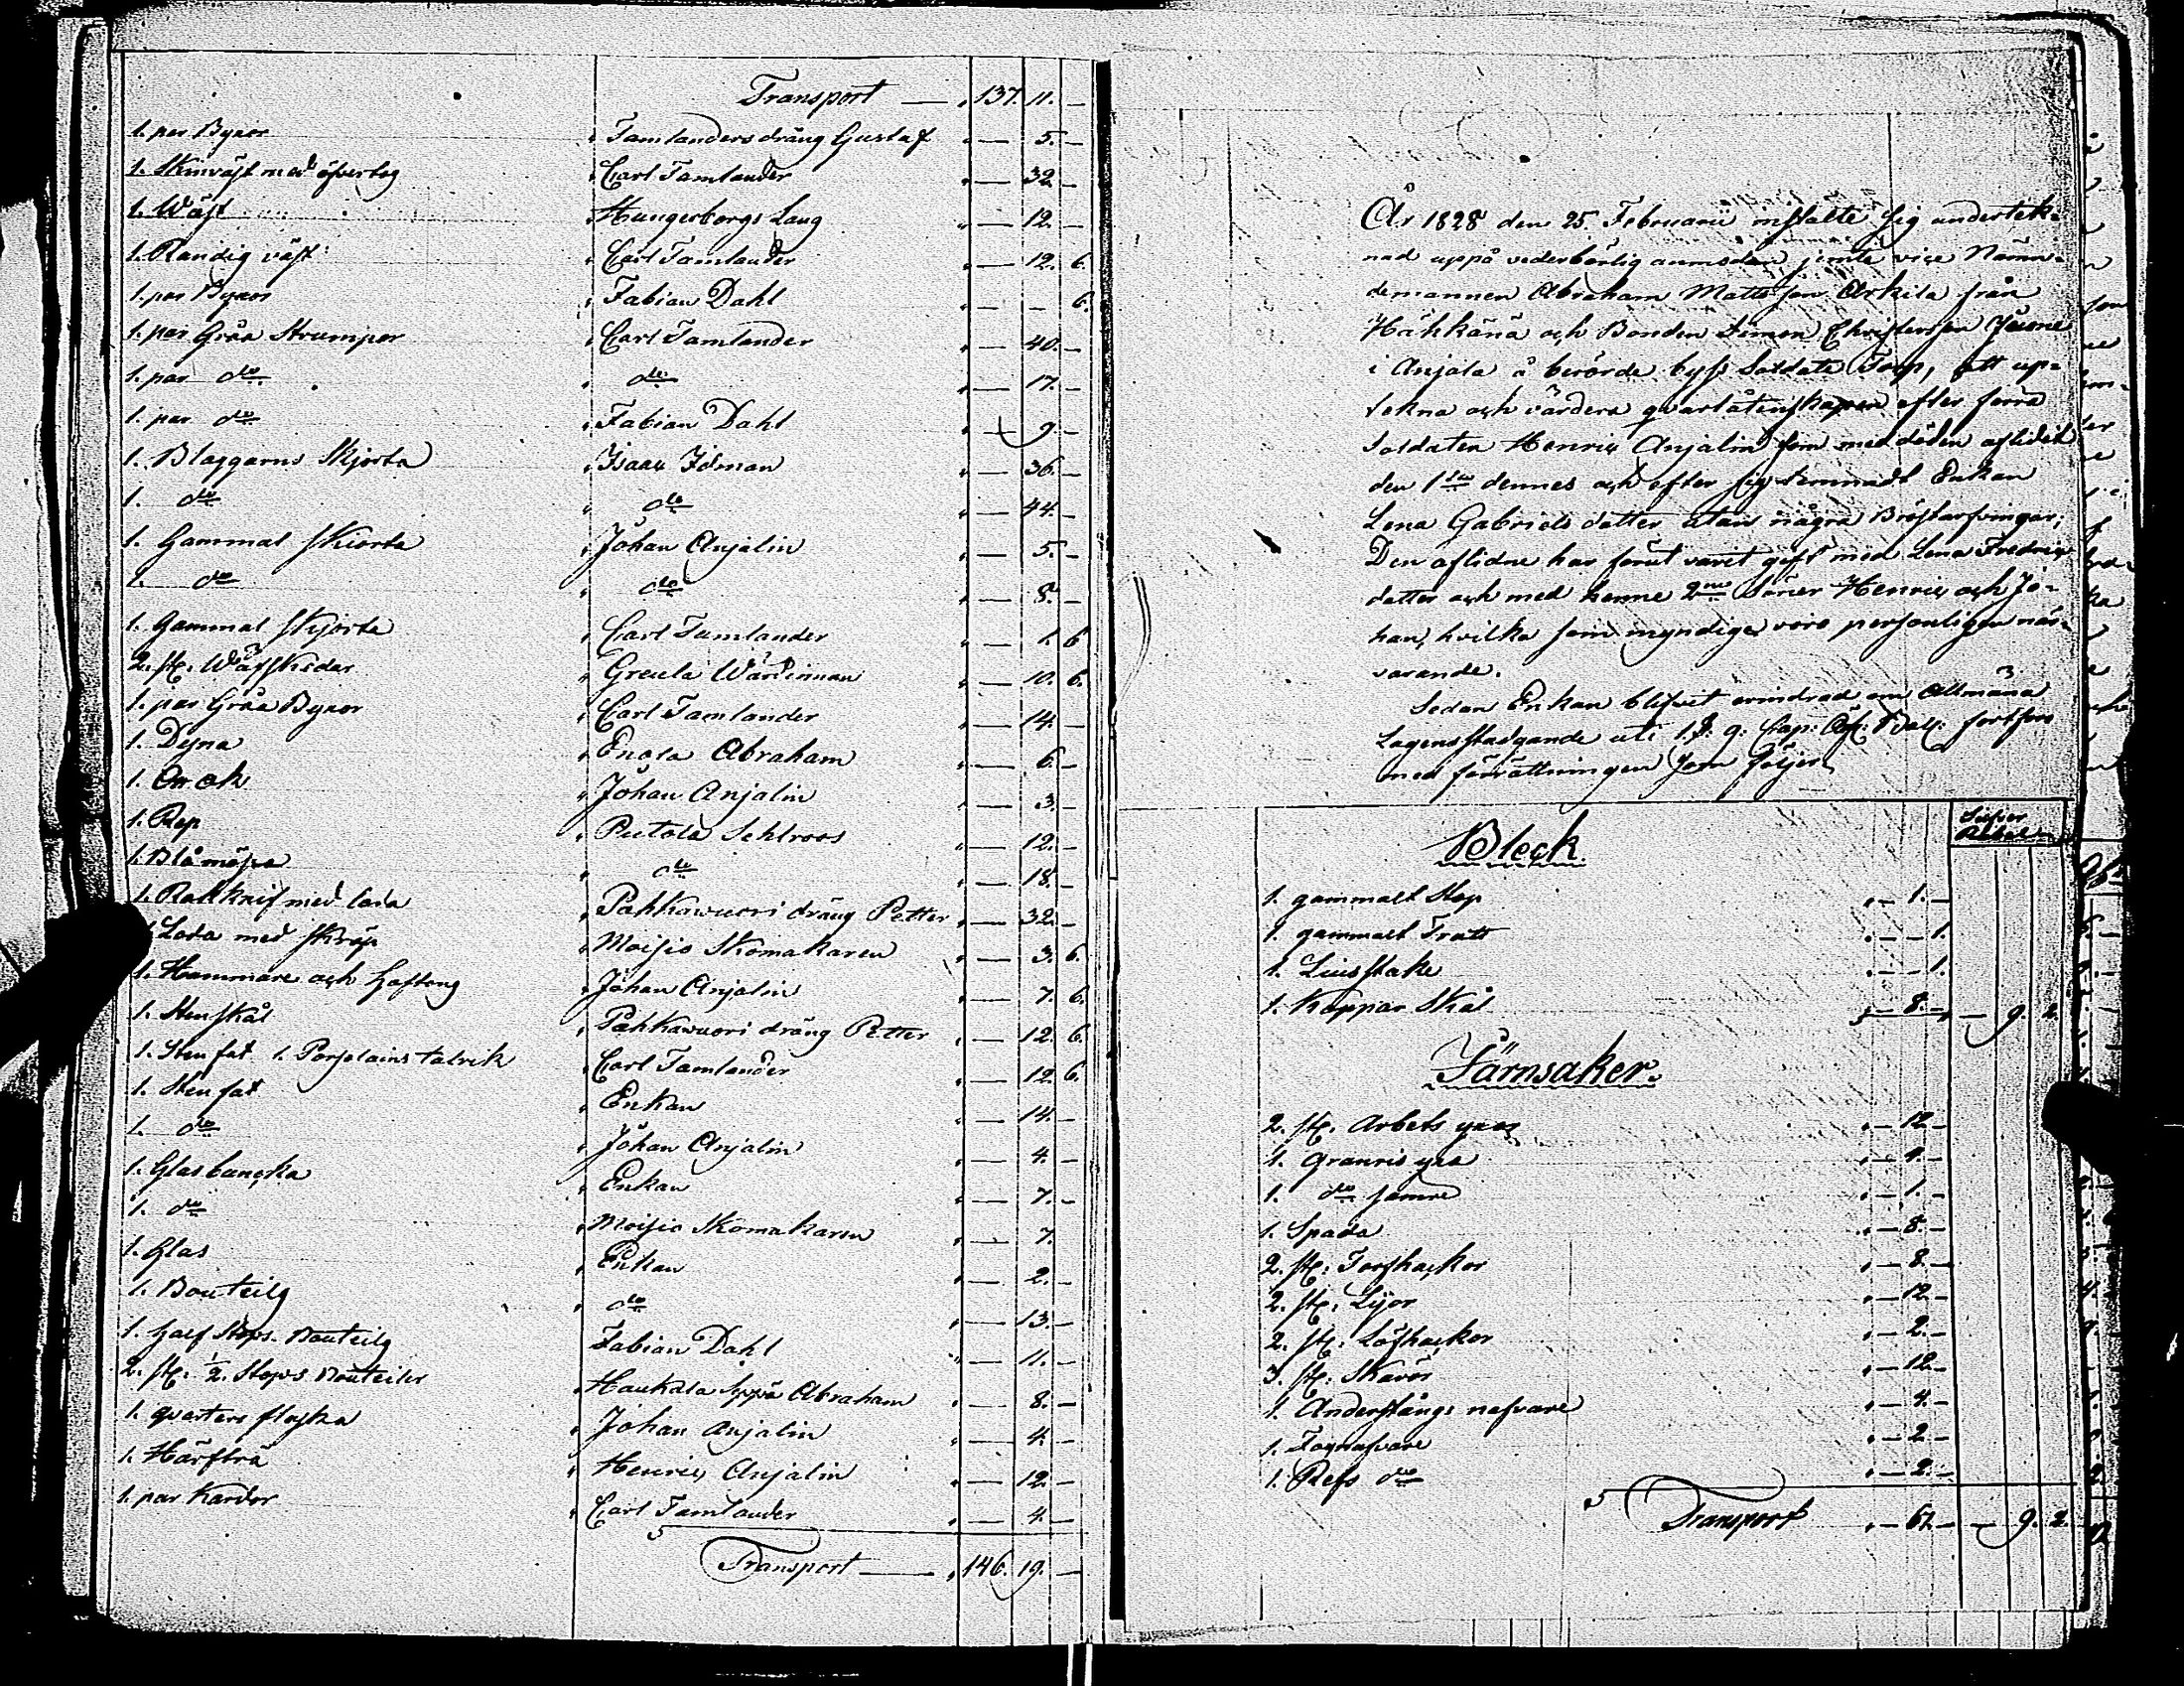 Transport — „ 137. 11. —
1. par Byxor „ Tamlanders dräng Gustaf „ — 5. —
1. Skinväst med öfvertog „ Carl Tamlander „ — 32. —
1. Wäst „ Hungerborgs Laug „ — 12. —
1. Randig väst „ Carl Tamlander „ — 12. 6.
1. par Byxor „ Fabian Dahl „ — — 6.
1. par Gråa Strumpor „ Carl Tamlander „ — 40. —
1. par dto „ dto „ — 17. —
1. par dto „ Fabian Dahl „ — 9 —
1. Blaggarns Skjorta „ Isaac Idman „ — 36. —
1. dto „ dto „ — 44. —
1. Gammal Skiorta „ Johan Anjalin „ — 5. —
1. dto „ dto „ — 8. —
1. Gammal Skjorta „ Carl Tamlander „ — 1. 6
2. st. „ Greula „ — 10. 6.
1. par Gråa Byxor „ Carl Tamlander „ — 14. —
1. Dyna „ Abraham „ — 6. —
1. „ Johan Anjalin „ — 3. —
1. Rep „ Putola Sehlroos „ — 12. —
1. Blå mössa „ dto „ — 18. —
1. Rakknif med lada „ Pahkawuori dräng Petter „ — 32. —
1. Lada med skräp „ Moisio Skomakaren „ — 3. 6.
1. Hammare och Hoftong „ Johan Anjalin „ — 7. 6.
1. Stenskål „ Pahkawuori dräng Petter „ — 12. 6.
1. Stenfat 1. Porslains talrik „ Carl Tamlander „ — 12. 6.
1. Stenfat „ Enkan „ — 14. —
1. dto „ Johan Anjalin „ — 4. —
1. Glasbancka „ Enkan „ — 7. —
1. dto „ Moisio Skomakaren „ — 7. —
1. Glas „ Enkan „ — 2. —
1. Bouteilg „ dto „ — 13. —
1. half Stops Bouteilg „ Fabian Dahl „ — 11. —
2. st. ½ Stops Bouteiler „ Haukala Seppä Abraham „ — 8. —
1. qvarters flaska „ Johan Anjalin „ — 4. —
1. Härfträ „ Henric Anjalin „ — 12. —
1. par Kardor „ Carl Tamlander „ — 4. —
Transport — „ 146. 19. —
År 1828 den 25. Februarii instälte sig underteck-
nad uppå vederbörlig anmodan jemte vice Nämn-
demannen Abraham Mattsson Arkila från
Hähkänä och Bonden Simon Christersson
i Anjala å berörde byss Soldate Torp, att up-
tekna och värdera qvarlåtenskapen efter förra
Soldaten Henric Anjalin som med döden aflidit
den 1sta dennes och efter sig lemnadt Enkan
Lena Gabriels dotter utan några Bröstarfvingar;
Den aflidne har förut varit gift med Lena Fredrics
dotter och med henne 2ne Söner Henric och Jo-
han, hvilka som myndige voro personligen när-
varande.
Sedan Enkan blifvit erindrad om Allmäna
Lagens stadgande uti 1. §. 9. Cap: Balk: fortfors
med förrättningen som följer
Silfver
Rubel
Bleck.
1. gammalt Stop „ — 1. —
1. gammalt Tratt „ — — 1.
1. Liusstake „ — — 1.
1. Koppar Skål „ — 8. — — 9. 2.
Järnsaker.
2. st. Arbets yxor „ — 12 —
1. Granris yxa „ — 4. —
1. dto sämre „ — 1. —
1. Spada „ — 8. —
2. st. Torfhackor „ — 8. —
2. st. Lijor „ — 12 —
2. st. Löfhackor „ — 2. —
3. st. Skäror „ — 12 —
1. Anderstångs nafvare „ — 4. —
1. Fognafvare „ — 2. —
1. Refs dto „ — 2. —
Transport „ — 67. — — 9. 2.